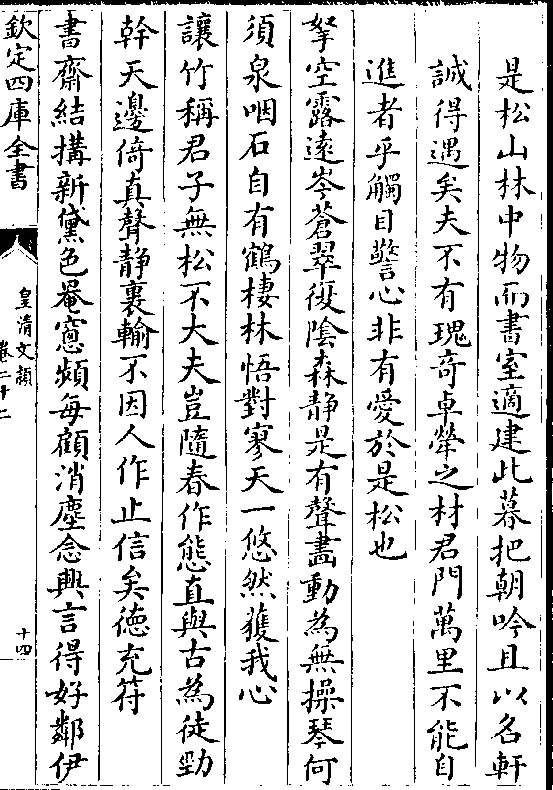 是松山林中物而書室適建此暮把朝吟且以名軒
誠得遇矣夫不有瑰奇卓犖之材君門萬里不能自
進者乎觸目警心非有愛於是松也
拏空露遠岑蒼翠復陰森静是有聲畵動為無操琴何
須泉咽石自有鶴棲林悟對寥天一悠然獲我心
讓竹稱君子無松不大夫豈隨春作態直與古為徒勁
幹天邊倚真聲静裏輸不因人作止信矣徳充符
書齋結構新黛色罨窻頻每顧消塵念興言得好鄰伊
欽定四庫全書
皇清文穎
卷二十二
十四